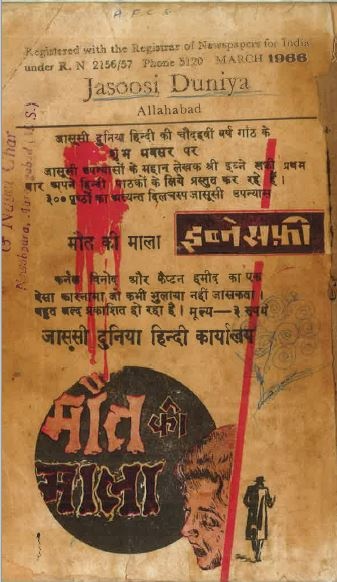 A. F. C. S.
Registered with the Registrar of Newspapers for India
under R. N 2156/57 Phone 5120 MARCH 1966
Jasoosi Duniya
Allahabad
जासूसी दुनिया हिन्दी की चौदहवीं वर्ष गांठ के
शुभ अवसर पर
जासूसी उपन्यासों के महान लेखक श्री इब्ने सफ़ी प्रथम
बार अपने हिन्दी पाठकों के लिये प्रस्तुत कर रहे हैं।
३०० पृष्ठों का अत्यन्त दिलचस्प जासूसी उपन्यास
मौत की माला
इब्नेसफ़ी
कर्नल विनोद और कैप्टन हमीद का एक
ऐसा कारनामा जो कभी भुलाया नहीं जासकता।
बहुत जल्द प्रकाशित हो रहा है। मूल्य—३ रुपये
जासूसी दुनिया हिन्दी कार्यालय
मौत की
माला